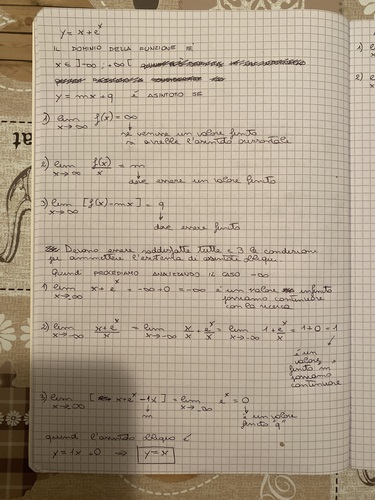 y = x + eˣ
IL DOMINIO DELLA FUNZIONE È
x ∈ ]-∞, +∞[
y = mx + q è ASINTOTO SE
1) lim x→∞ f(x) = ∞
se venisse un valore finito
si avrebbe l'asintoto orizzontale
2) lim x→∞ f(x)/x = m
deve essere un valore finito
3) lim x→∞ [f(x) - mx] = q
deve essere finito
Devono essere soddisfatte tutte e 3 le condizioni
per ammettere l'esistenza di asintoti obliqui
Quindi PROCEDIAMO ANALIZZANDO IL CASO -∞
1) lim x→-∞ x + eˣ = -∞ + 0 = -∞ è un valore infinito
possiamo continuare
con la ricerca
2) lim x→-∞ (x + eˣ)/x = lim x→-∞ x/x + eˣ/x = lim x→-∞ 1 + eˣ/x = 1 + 0 = 1
è un
valore
finito m
possiamo
continuare
3) lim x→-∞ [x + eˣ - 1x] = lim x→-∞ eˣ = 0
m
è un valore
finito "q"
quindi l'asintoto obliquo è
y = 1x + 0 ⇒ y = x
1)
2)
tat